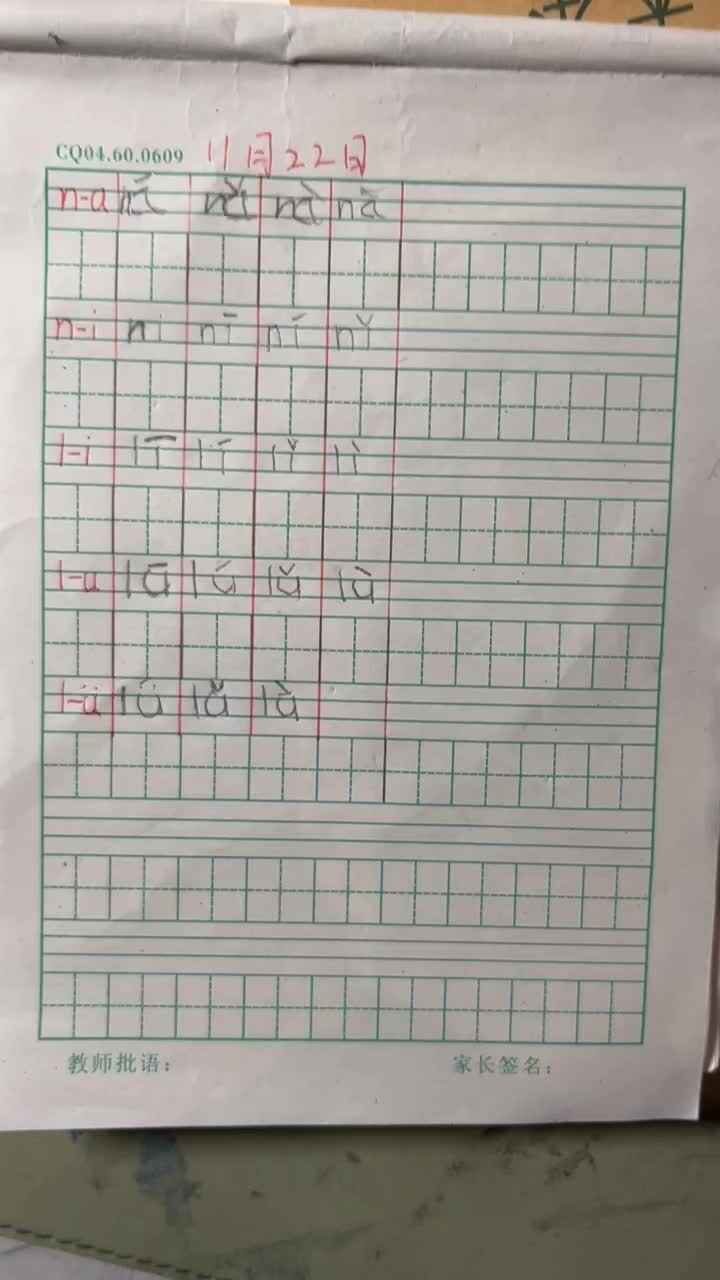 CQ04.60.0609 11月22日
n-a ná nǎ nà nà
n-i ni nī ní nǐ
l-i lī lí lǐ lì
l-u lū lú lǔ lù
l-ü lǘ lǚ lǜ
教师批语： 家长签名：